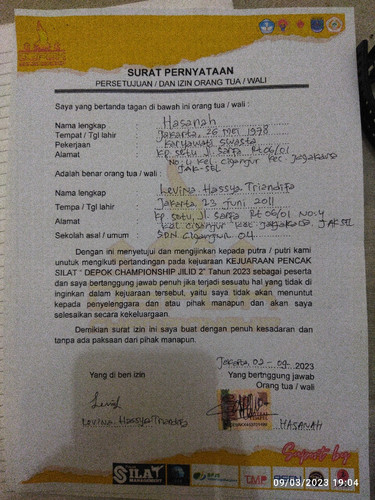 SURAT PERNYATAAN
PERSETUJUAN / DAN IZIN ORANG TUA / WALI
Saya yang bertanda tagan di bawah ini orang tua / wali :
Nama lengkap : Hasanah
Tempat / Tgl lahir : Jakarta, 26 Mei 1978
Pekerjaan : Karyawati Swasta
Alamat : Kp setu Jl. Sarfa Rt 06/01
No.4 Kel. Ciganjur Kec. Jagakarsa
JAK-SEL
Adalah benar orang tua / wali :
Nama lengkap : Levina Hassya Triandifa
Tempa / Tgl lahir : Jakarta, 23 Juni 2011
Alamat : Kp setu, Jl. Sarfa Rt 06/01 No.4
Kel. Ciganjur Kec. Jagakarsa JAK-SEL
Sekolah asal / umum : SDN Ciganjur 04
Dengan ini menyetujui dan mengijinkan kepada putra / putri kami
unutuk mengikuti pertandingan pada kejuaraan KEJUARAAN PENCAK
SILAT " DEPOK CHAMPIONSHIP JILID 2" Tahun 2023 sebagai peserta
dan saya bertanggung jawab penuh jika terjadi sesuatu hal yang tidak di
inginkan dalam kejuaraan tersebut, yaitu saya tidak akan menuntut
kepada penyelenggara dan atau pihak manapun dan akan saya
selesaikan secara kekeluargaan.
Demikian surat izin ini saya buat dengan penuh kesadaran dan
tanpa ada paksaan dari pihak manapun.
Jakarta, 02-09-2023
Yang di beri izin
Yang bertnggung jawab
Orang tua / wali
Levina Hassya Triandifa
HASANAH
Suport by
SILAT
MANAGEMENT
TMP
09/03/2023 19:04